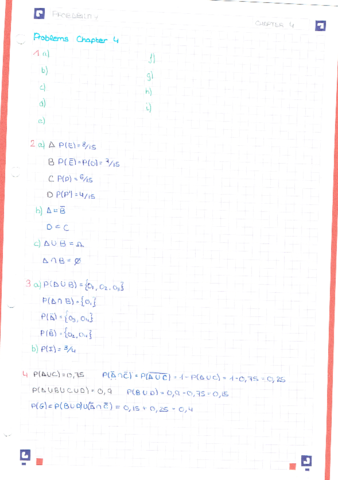 PROBABILITY
CHAPTER 4
Problems Chapter 4
1 a) f)
b) g)
c) h)
d) i)
e)
2 a) A P(E)=8/15
B P(Ē)=P(O)=7/15
C P(P)=6/15
D P(P')=4/15
b) A = B̄
D = C
c) A ∪ B = Ω
A ∩ B = ∅
3 a) P(A ∪ B) = {O₁, O₂, O₃}
P(A ∩ B) = {O₁}
P(Ā) = {O₃, O₄}
P(B̄) = {O₂, O₄}
b) P(I) = 3/4
4 P(A∪C)=0,75 P(Ā∩C̄) = P(A∪C) = 1-P(A∪C) = 1-0,75 = 0,25
P(A∪B∪C∪D) = 0,9 P(B∪D) = 0,9-0,75 = 0,15
P(G) = P(B∪D)∪(Ā∩C̄) = 0,15 + 0,25 = 0,4